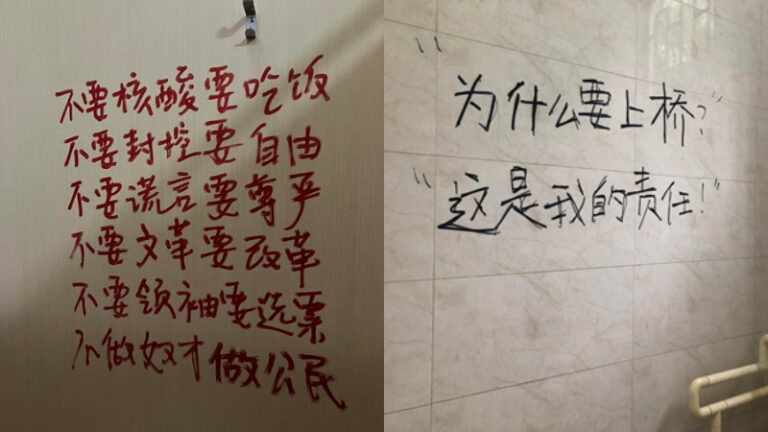 不要核酸要吃饭
不要封控要自由
不要谎言要尊严
不要文革要改革
不要领袖要选票
不做奴才做公民
"为什么要上桥?"
"这是我的责任!"